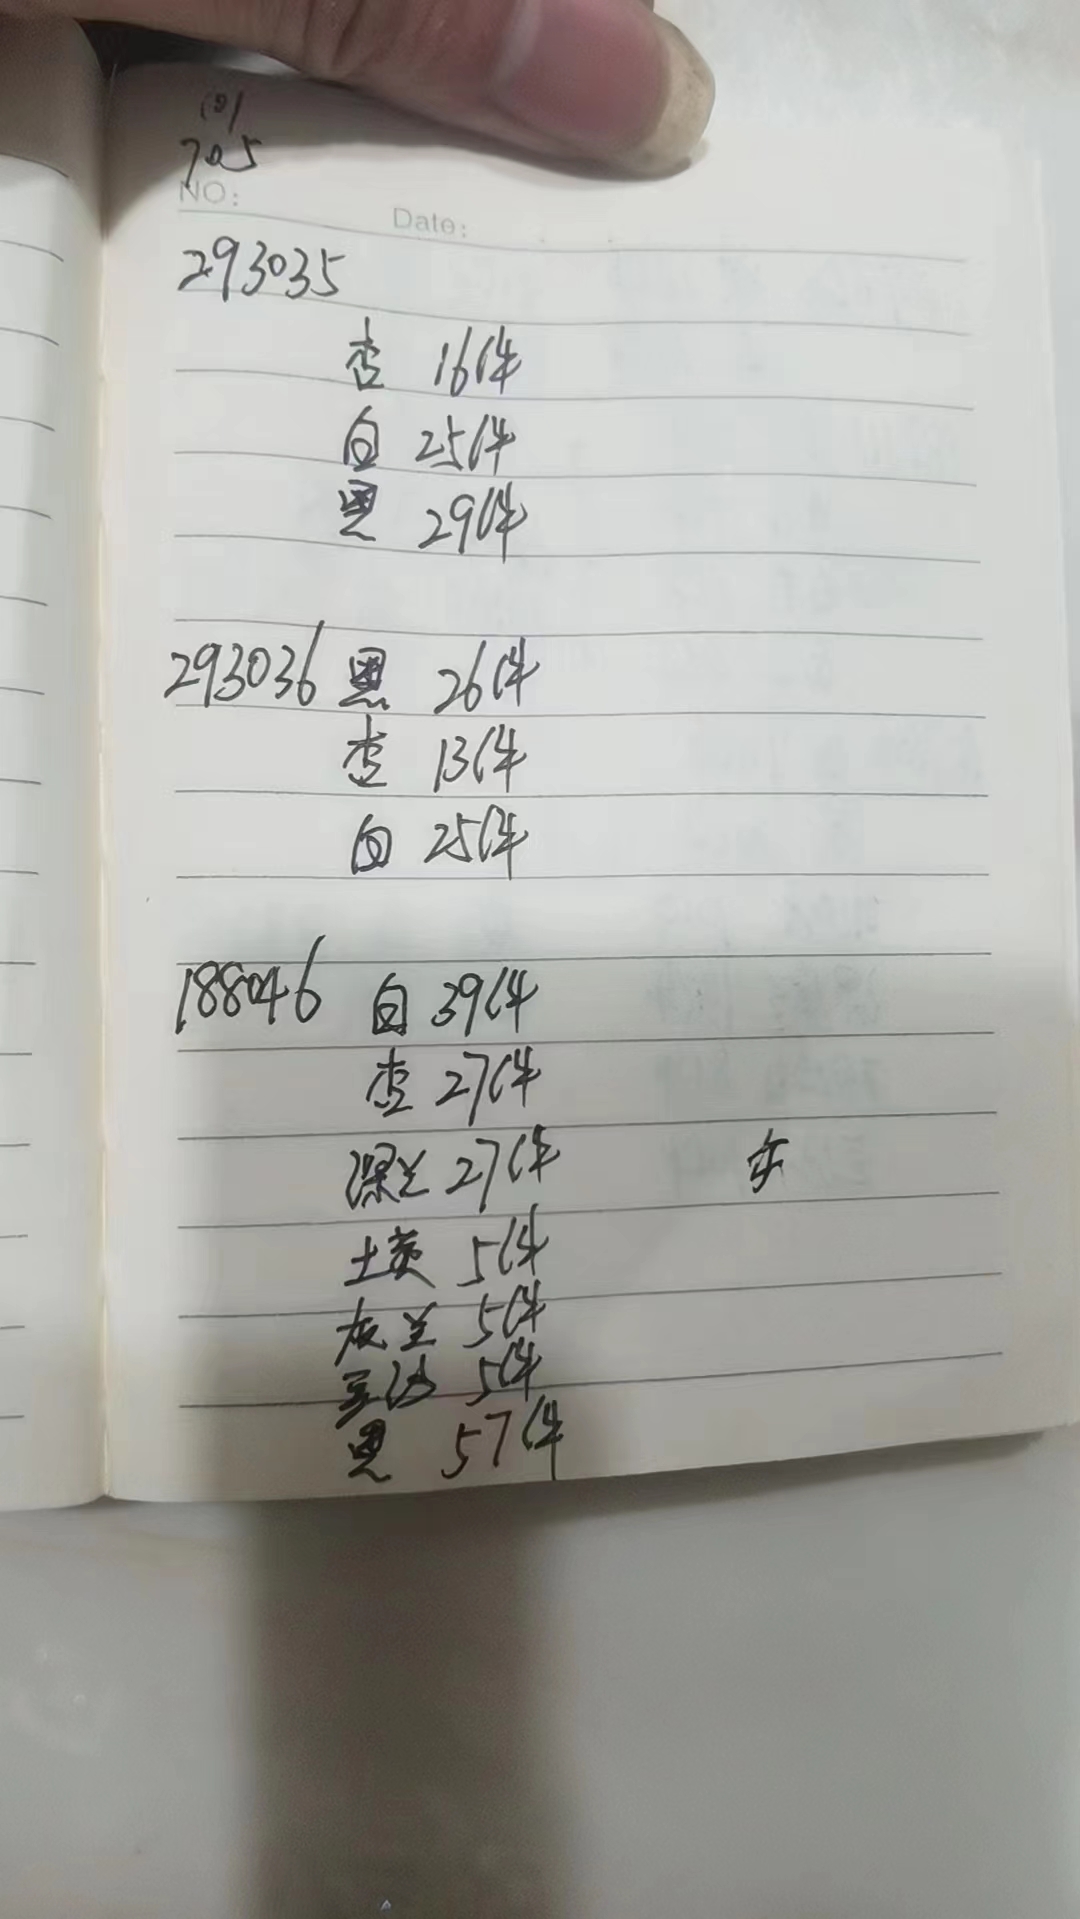 705
NO:
Date:
293035
杏 16件
白 25件
黑 29件
293036 黑 26件
杏 13件
白 25件
188046 白 39件
杏 27件
深兰 27件
土黄 5件
灰兰 5件
豆沙 5件
黑 57件